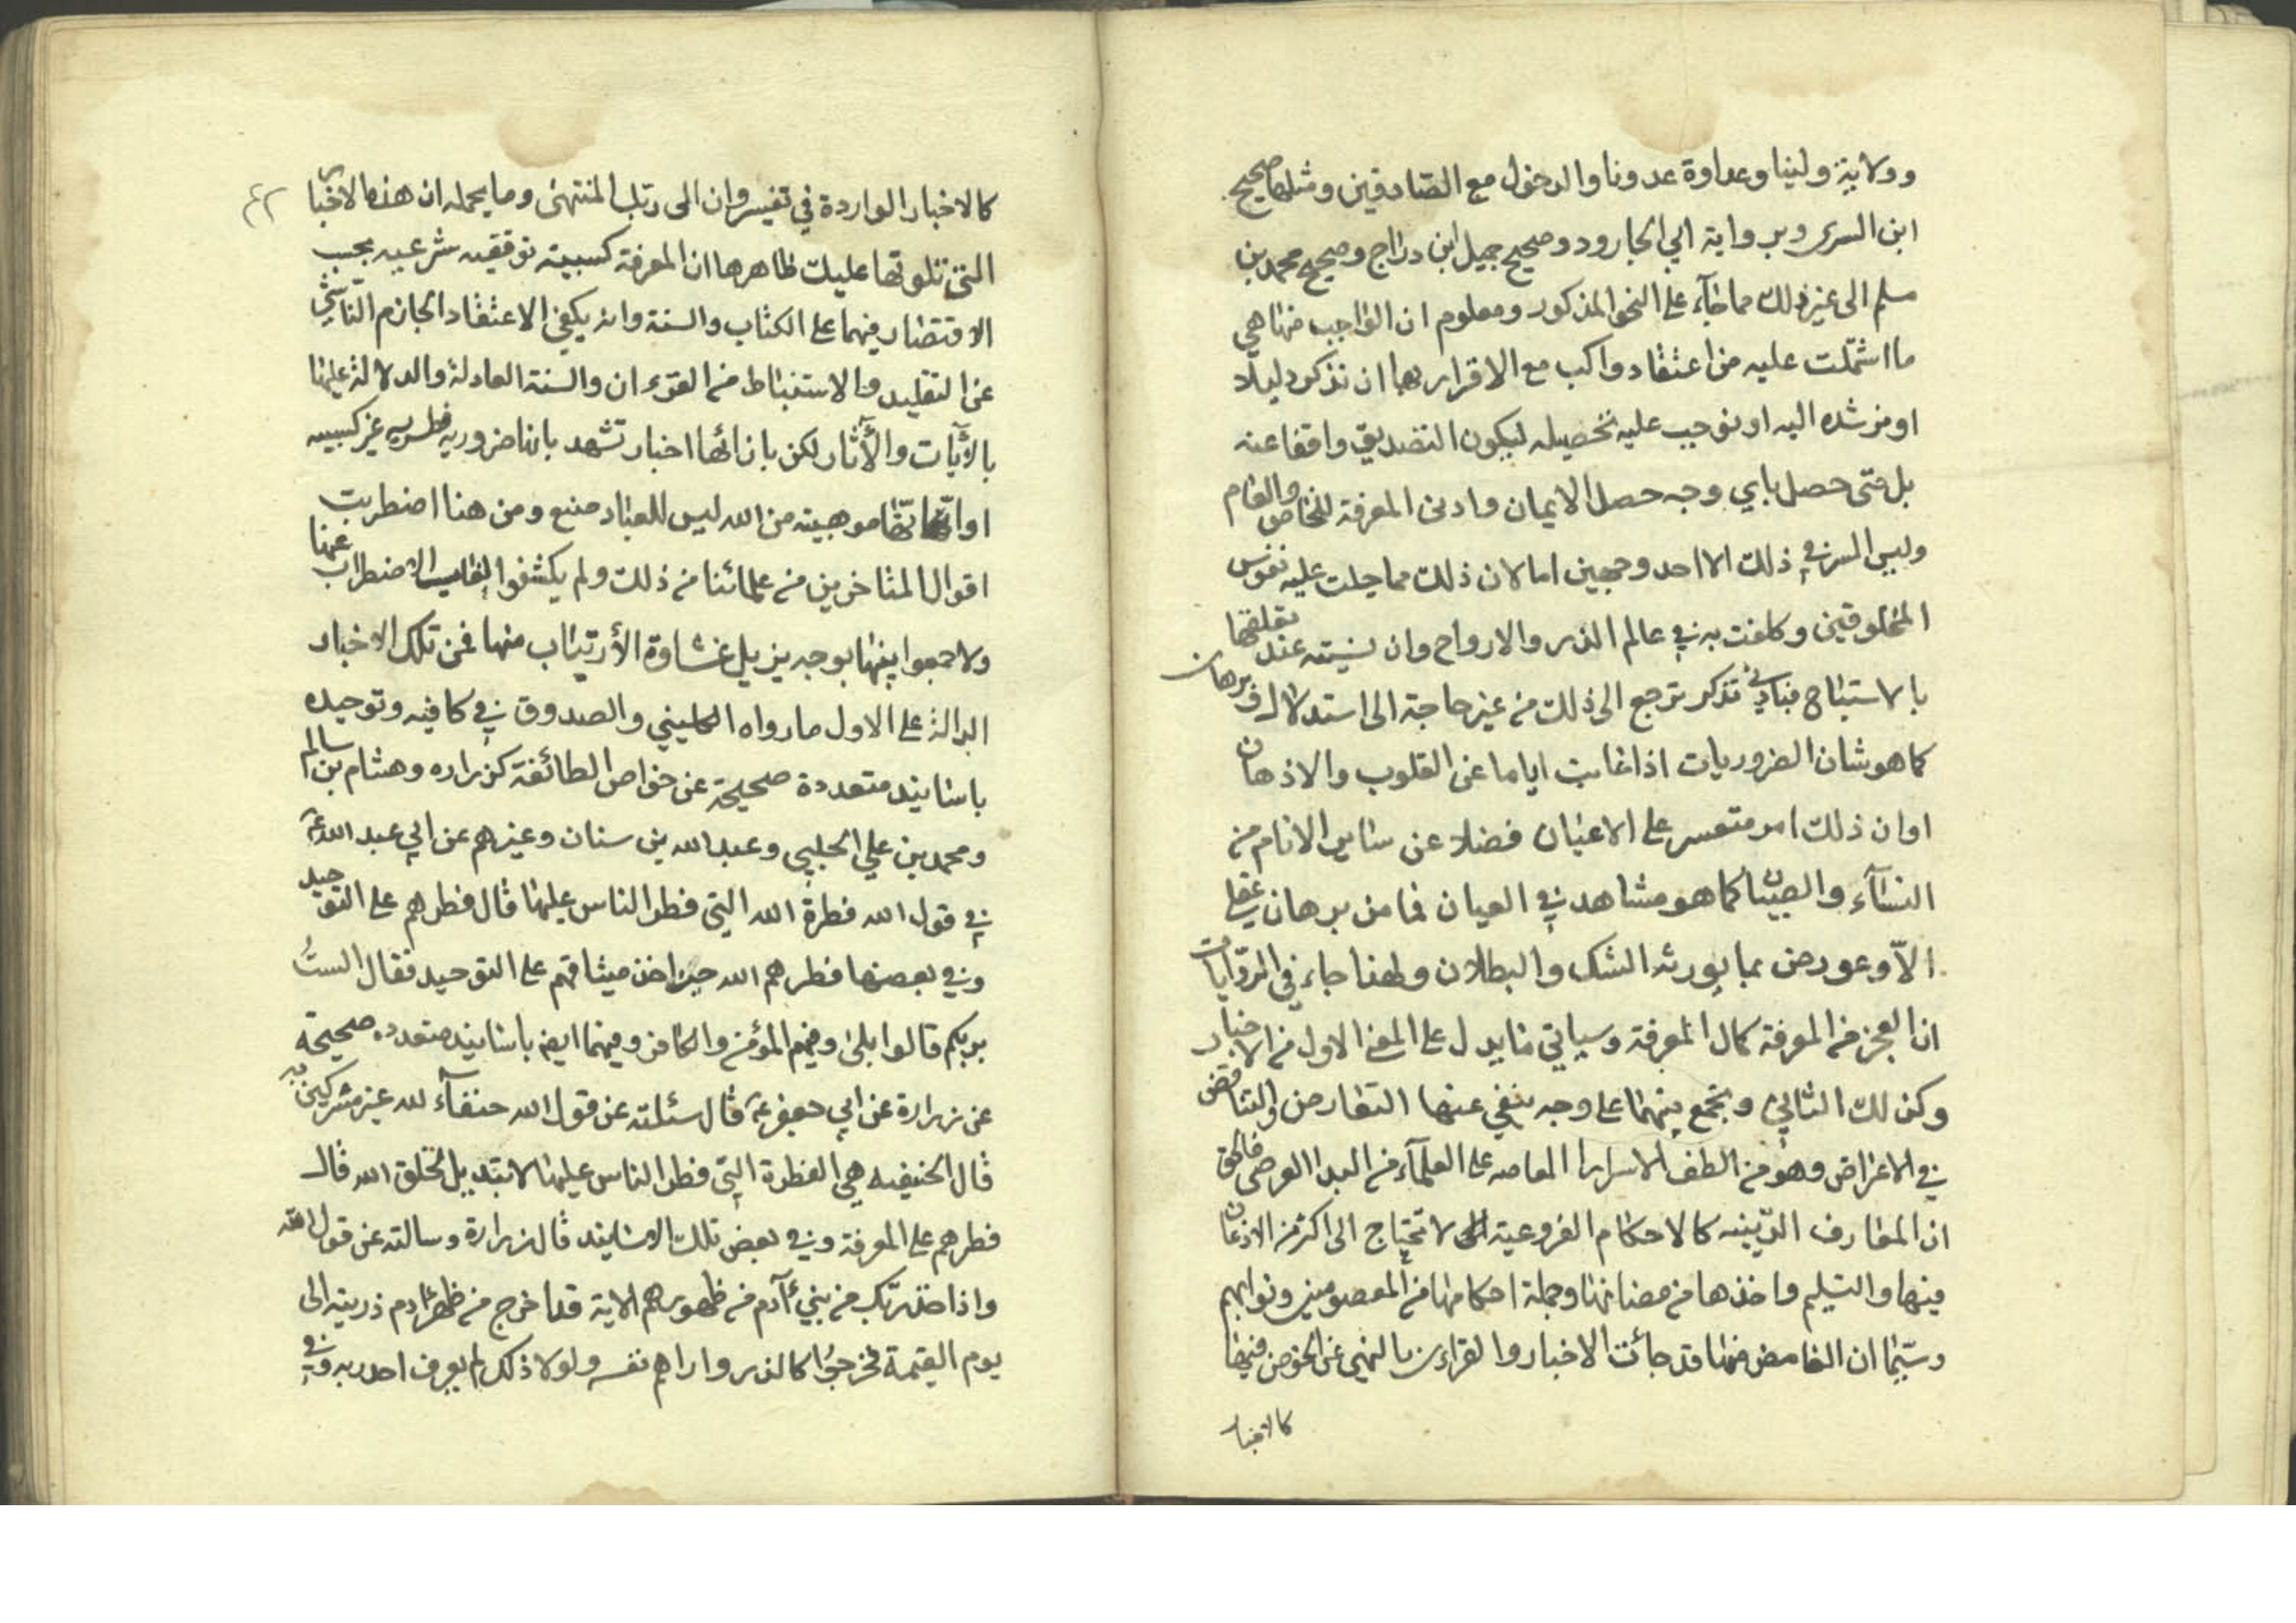 وولاية ولينا وعداوة عدونا والدخول مع الصادقين ومثلها صحيح
ابن السرى وبرواية ابي الجارود وصحيح جميل ابن دراج وصحيح محمد بن
مسلم الى غير ذلك مما جآء على النحو المذكور ومعلوم ان الواجب منها هي
ما اشتملت عليه من اعتقاد واكب مع الاقرار بها ان نذكر دليلا
او نرشده اليه او نوجب عليه تحصيله ليكون التصديق واقفا عنه
بل متى حصل باي وجه حصل الايمان وادنى المعرفة للخاص والعام
وليس السر في ذلك الا احد وجهين اما لان ذلك مما جبلت عليه نفوس
المخلوقين وكلفت به في عالم الذر والارواح وان نسيته عند تعلقها
بالاشباح فبادنى تذكر ترجع الى ذلك من غير حاجة الى استدلال وبرهان
كما هو شان الضروريات اذا غابت اياما عن القلوب والاذهان
او ان ذلك امر متعسر على الاعيان فضلا عن سائر الانام من
النسآء والصبيان كما هو مشاهد في العيان فما من برهان عقلي
الا وعورض بما يورثه الشك والبطلان ولهذا جاء في الروايات
ان العجز من المعرفة كمال المعرفة وسياتي ما يدل على المعنى الاول من الاخبار
وكذلك الثاني ونجمع بينهما على وجه ينفي عنها التعارض والتناقض
في الاغراض وهو من الطف الاسرار على العلمآء من فالحق
ان المعارف الدينيه كالاحكام الفروعية لا تحتاج الى اكثر من الاذعان
فيها والتسليم واخذها من مضانها وجملة احكامها من المعصومين ونوابهم
وسيما ان الغامض منها قد جائت الاخبار والقراءن بالنهي عن الخوض فيها
كالاخبار
كالاخبار الواردة في تفسير وان الى ربك المنتهى وما يحمله ان هذه الاخبار
التي تلوتها عليك ظاهرها ان المعرفة كسبية توقيفيه شرعيه يجب
الاقتصار فيهما على الكتاب والسنة وانه يكفي الاعتقاد الجازم الناشي
عن التقليد والاستنباط من القرءان والسنة العادلة والدلالة عليها
بالآيات والآثار لكن بازائها اخبار تشهد بانها ضروريه فطريه غير كسبيه
او انها موهبية من الله ليس للعباد صنع ومن هنا اضطربت
اقوال المتاخرين من علمائنا من ذلك ولم يكشفوا نقاب الاضطراب عنها
ولا جمعوا بينها بوجه يزيل غشاوة الأرتياب منها فمن تلك الاخبار
الدالة على الاول ما رواه الكليني والصدوق في كافيه وتوحيده
باسانيد متعددة صحيحة عن خواص الطائفة كزراره وهشام بن سالم
ومحمد بن علي الحلبي وعبدالله بن سنان وغيرهم عن ابي عبد الله ع
في قول الله فطرة الله التي فطر الناس عليها قال فطرهم على التوحيد
وفي بعضها فطرهم الله حين اخذ ميثاقهم على التوحيد فقال الست
بربكم قالوا بلى وفيهم المؤمن والكافر وفيهما ايض باسانيد متعدده صحيحة
عن زرارة عن ابي جعفر ع قال سئلته عن قول الله حنفآء لله غير مشركين به
قال الحنيفيه هي الفطرة التي فطر الناس عليها لا تبديل لخلق الله قال
فطرهم على المعرفة وفي بعض تلك الاسانيد قال زرارة وسالته عن قول الله
واذ اخذ ربك من بني آدم من ظهورهم الاية قد اخرج من ظهر ادم ذريته الى
يوم القيمة فخرجوا كالذر واراهم نفسه ولولا ذلك لم يعرف احد ربه وفي